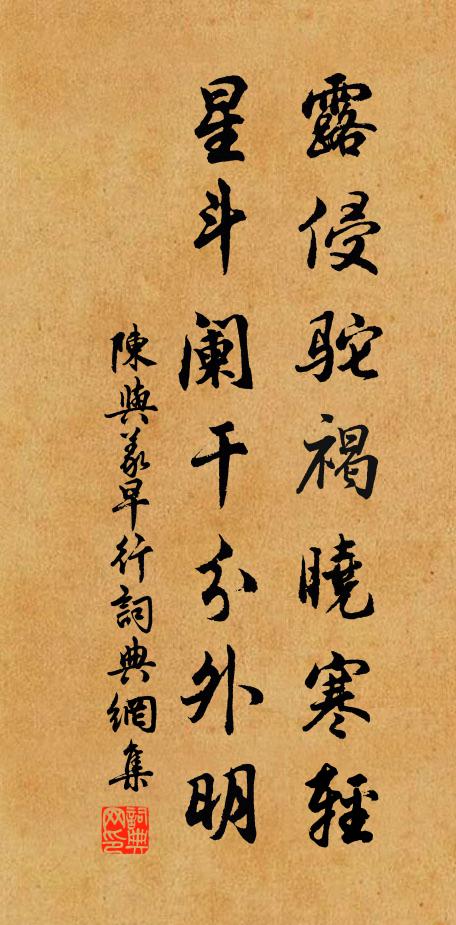 露侵駝褐曉寒輕
星斗阑干分外明
陳與義早行詞典網集
詞典网印